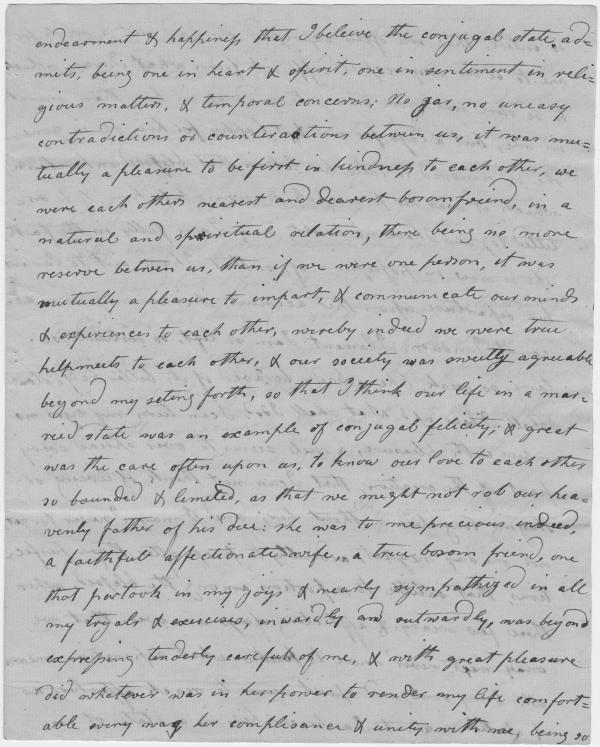 endearment & happiness that I beleive the conjugal state ad-
mits, being one in heart & spirit, one in sentiment in reli-
gious matters, & temporal concerns; No jar, no uneasy
contradictions or counteractions between us, it was mu-
tually a pleasure to be first in kindness to each other, we
were each others nearest and dearest bosom friend, in a
natural and spiritual relation, there being no more
reserve betwen us, than if we were one person, it was
mutually a pleasure to impart, & communicate our minds
& experiences to each other, wereby indeed we were true
helpmeets to each other, & our society was sweetly agreeable
beyond my seting forth, so that I think our life in a mar-
ried state was an example of conjugal felicity; & great
was the care often upon us, to know our love to each other
so bounded & limited, as that we might not rob our hea-
venly father of his due: she was to me precious indeed,
a faithfull affectionate wife, a true bosom friend, one
that partook in my joys & nearly sympathized in all
my tryals & exercises, inwardly and outwardly, was beyond
expressing tenderly careful of me, & with great pleasure
did whatever was in her power to render my life comfort-
able every way her complisance & unity with me, being so